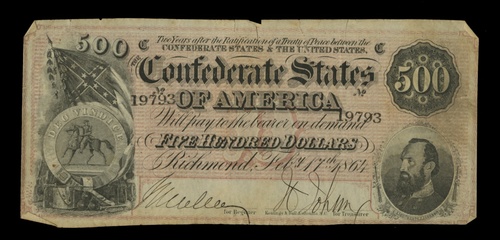 500 C Two Years after the Ratification of a Treaty of Peace between the C
CONFEDERATE STATES & THE UNITED STATES,
THE Confederate States 500
No 19793 OF AMERICA No 19793
Will pay to the bearer on demand
FIVE HUNDRED DOLLARS
Richmond, Feby 17th 1864
for Register for Treasurer